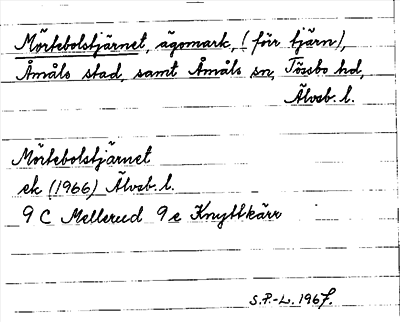 Mörtebolstjärnet, ägomark, (förr tjärn),
Åmåls stad, samt Åmåls sn, Tössbo hd,
Älvsb. l.
Mörtebolstjärnet
ek (1966) Älvsb. l.
9 C Mellerud 9 e Knyttkärr
S.P.-L. 1967.